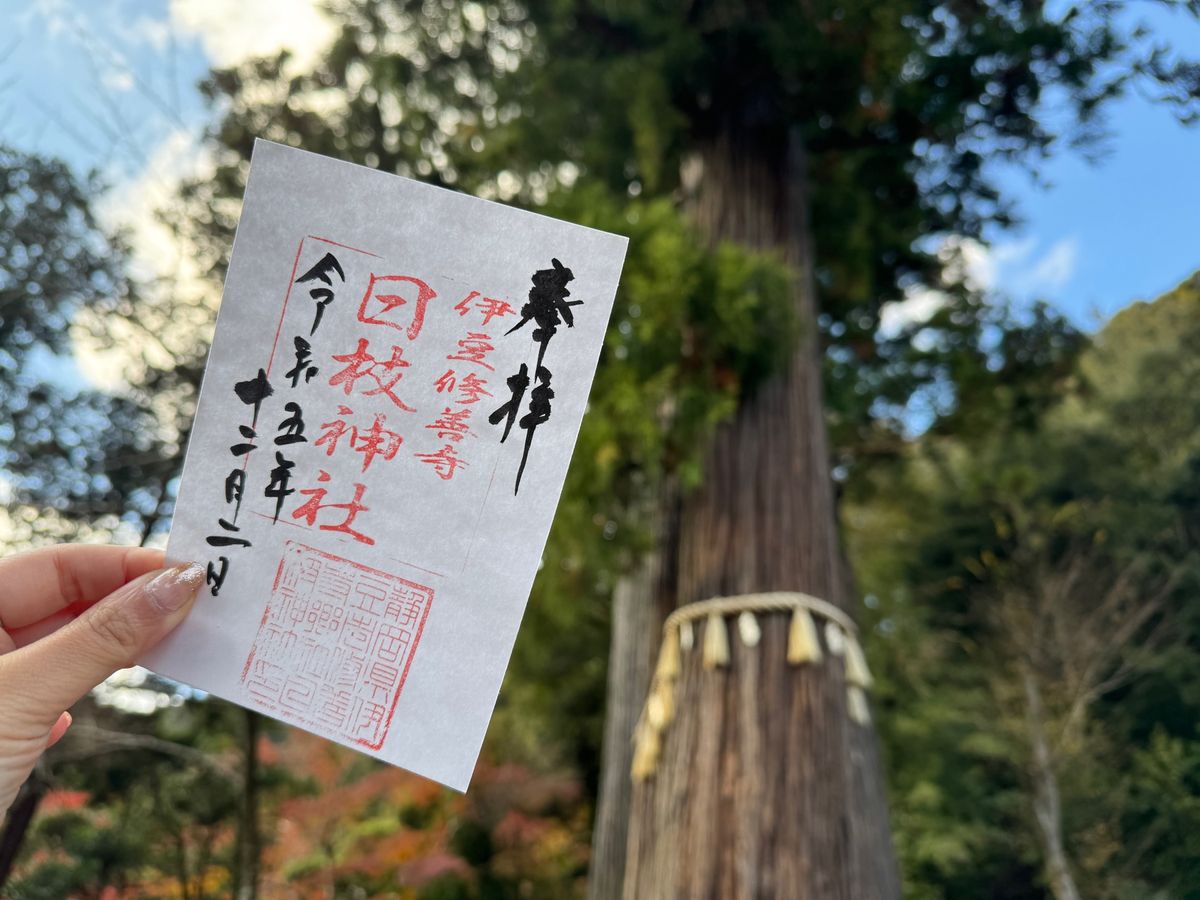 奉拝
伊豆修善寺
日枝神社
令和五年
十二月二日
静岡県伊